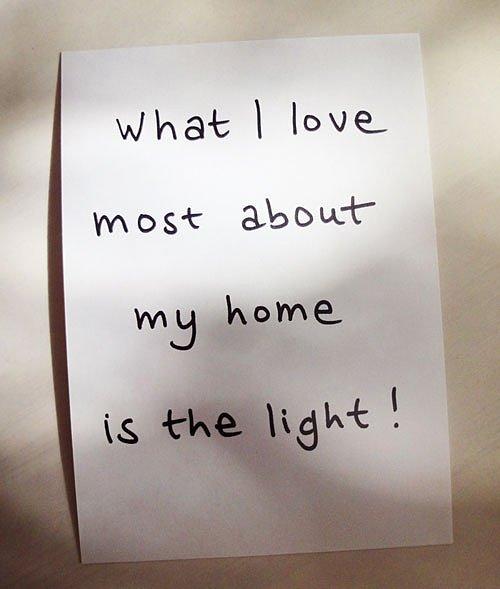 what I love
most about
my home
is the light!